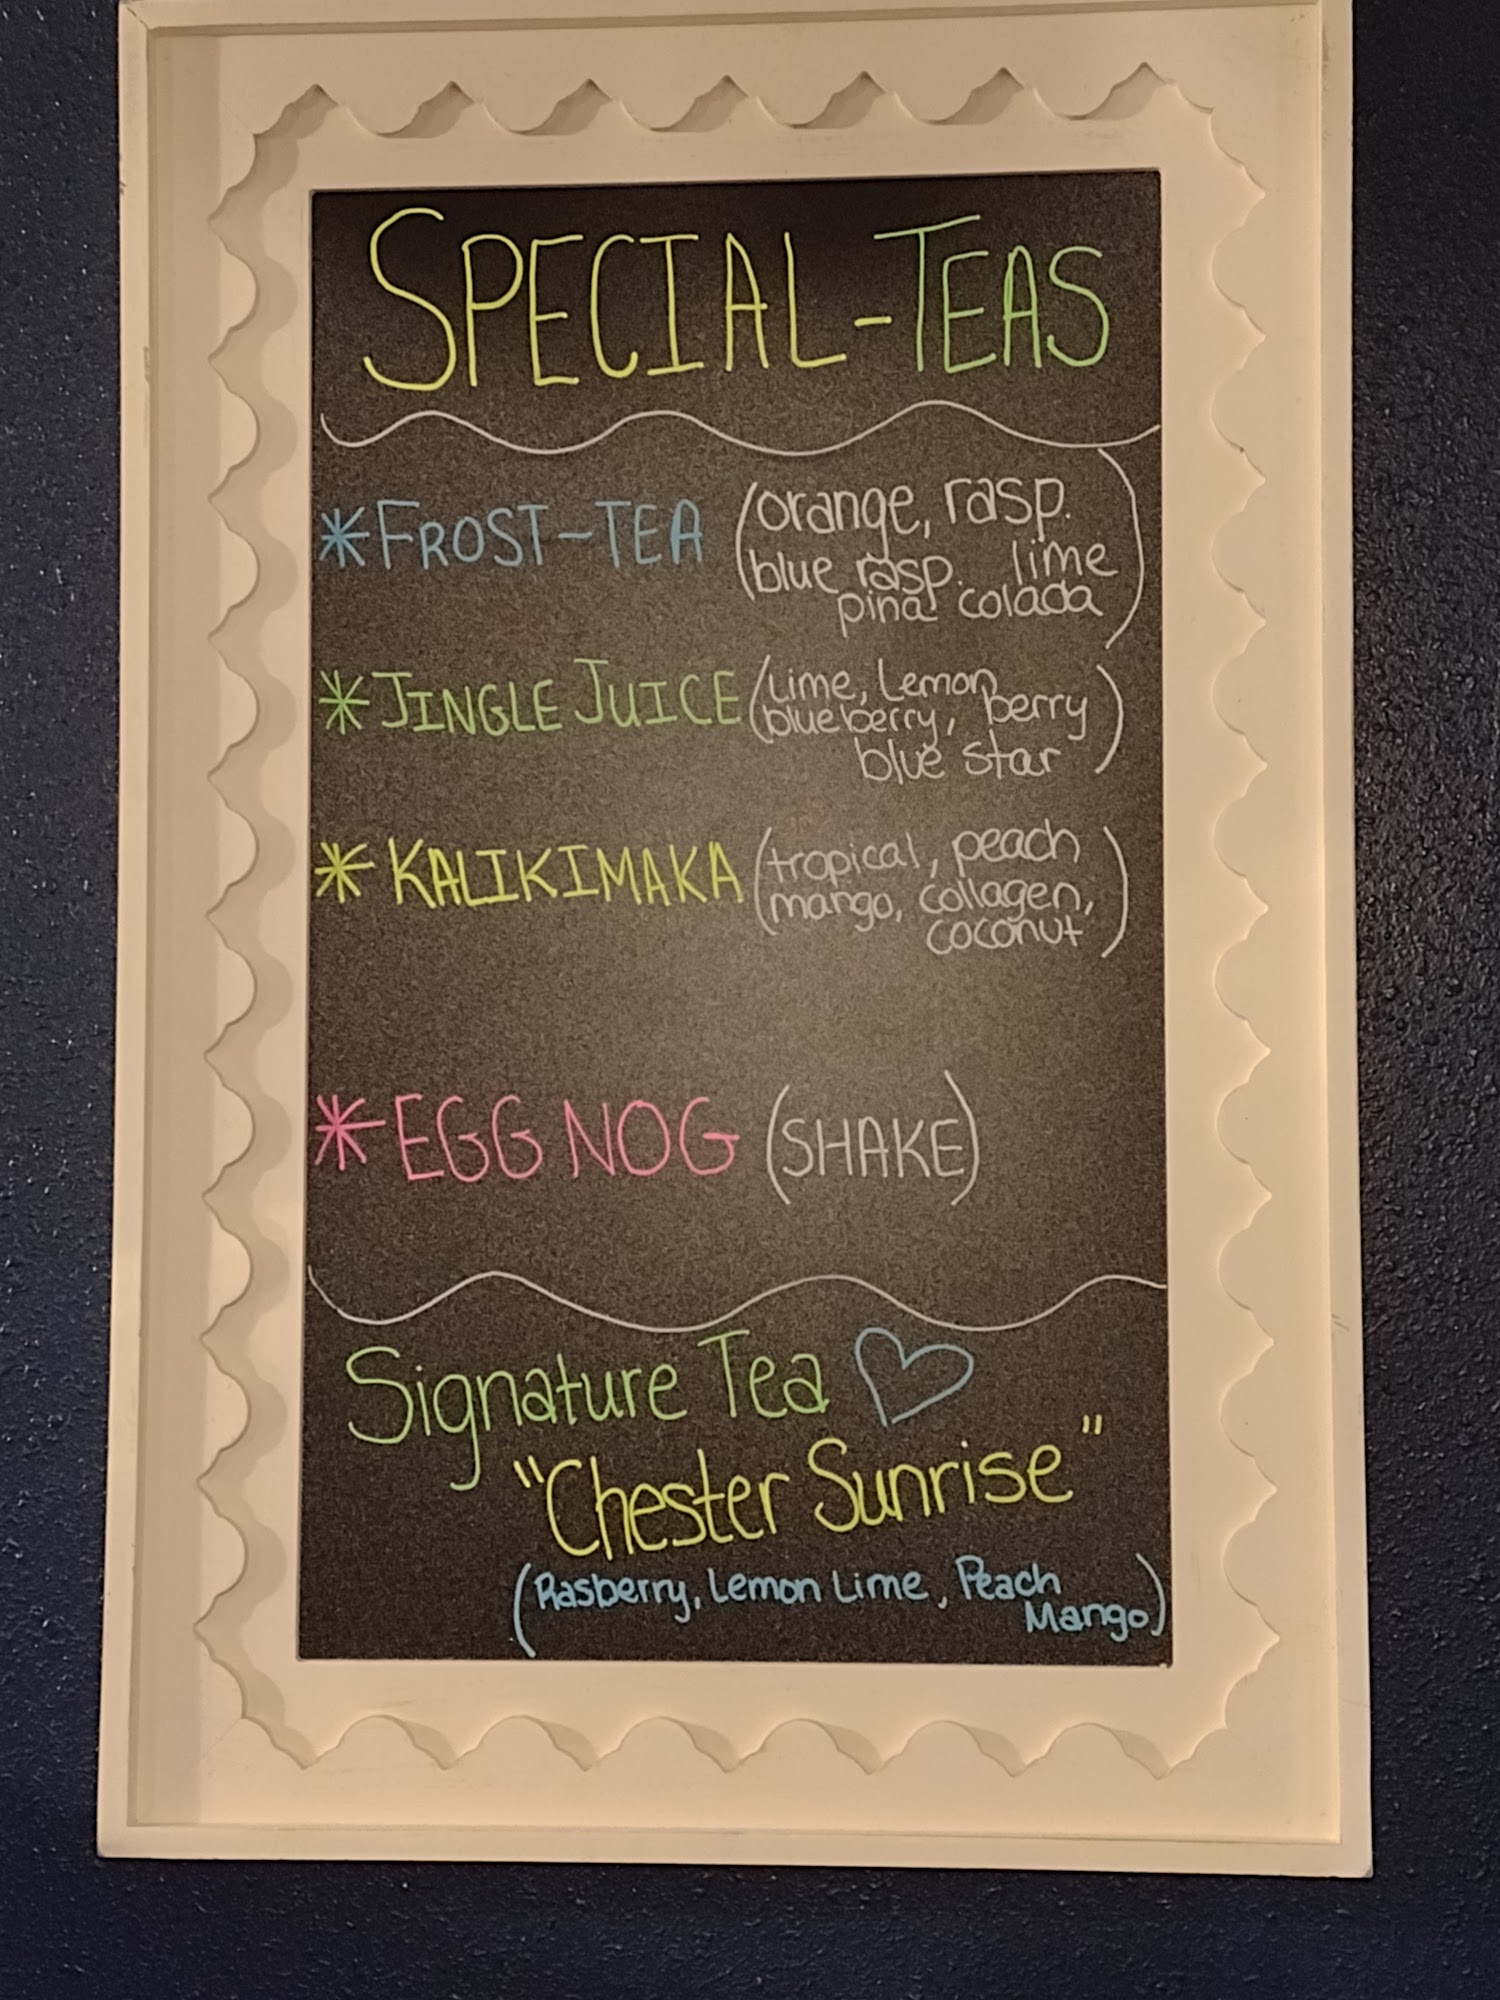 SPECIAL-TEAS
*FROST-TEA (orange, rasp.
blue rasp. lime
pina colada)
*JINGLE JUICE (Lime, Lemon,
blueberry, berry
blue star)
*KALIKIMAKA (tropical, peach
mango, collagen,
coconut)
*EGG NOG (SHAKE)
Signature Tea
"Chester Sunrise"
(Rasberry, Lemon Lime, Peach
Mango)